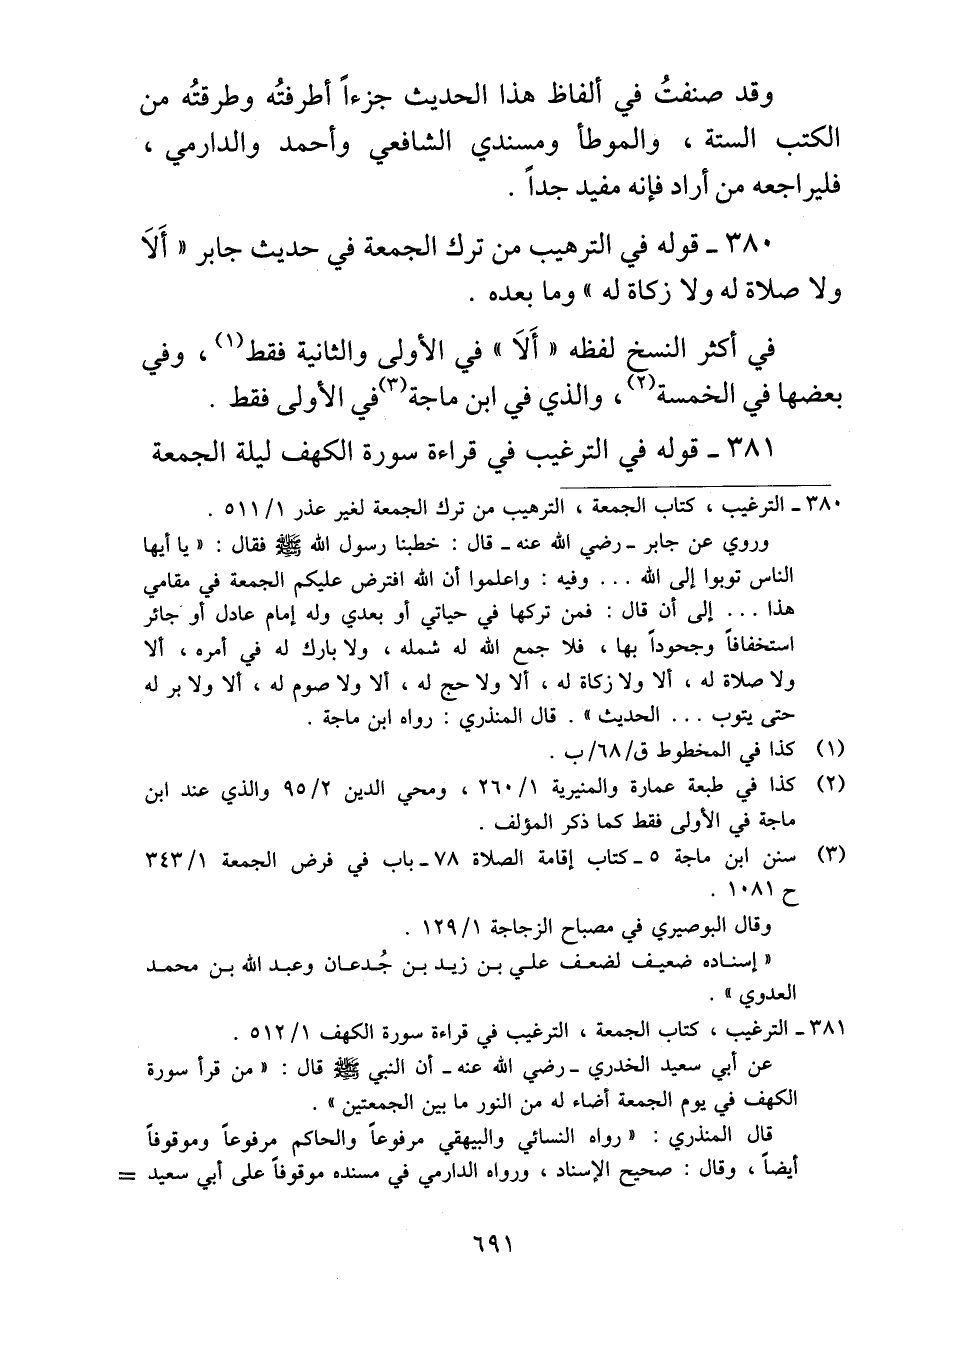 وقد صنفتُ في ألفاظ هذا الحديث جزءاً أطرفتُه وطرقتُه من
الكتب الستة ، والموطأ ومسندي الشافعي وأحمد والدارمي ،
فليراجعه من أراد فإنه مفيد جداً .
٣٨٠ ـ قوله في الترهيب من ترك الجمعة في حديث جابر « أَلَا
ولا صلاة له ولا زكاة له » وما بعده .
في أكثر النسخ لفظه « أَلَا » في الأولى والثانية فقط(١) ، وفي
بعضها في الخمسة(٢) ، والذي في ابن ماجة(٣) في الأولى فقط .
٣٨١ ـ قوله في الترغيب في قراءة سورة الكهف ليلة الجمعة
٣٨٠ ـ الترغيب ، كتاب الجمعة ، الترهيب من ترك الجمعة لغير عذر ٥١١/١ .
وروي عن جابر ـ رضي الله عنه ـ قال : خطبنا رسول الله ﷺ فقال : « يا أيها
الناس توبوا إلى الله ... وفيه : واعلموا أن الله افترض عليكم الجمعة في مقامي
هذا ... إلى أن قال : فمن تركها في حياتي أو بعدي وله إمام عادل أو جائر
استخفافاً وجحوداً بها ، فلا جمع الله له شمله ، ولا بارك له في أمره ، ألا
ولا صلاة له ، ألا ولا زكاة له ، ألا ولا حج له ، ألا ولا صوم له ، ألا ولا بر له
حتى يتوب ... الحديث » . قال المنذري : رواه ابن ماجة .
(١) كذا في المخطوط ق/٦٨/ب .
(٢) كذا في طبعة عمارة والمنيرية ٢٦٠/١ ، ومحي الدين ٩٥/٢ والذي عند ابن
ماجة في الأولى فقط كما ذكر المؤلف .
(٣) سنن ابن ماجة ٥ ـ كتاب إقامة الصلاة ٧٨ ـ باب في فرض الجمعة ٣٤٣/١
ح ١٠٨١ .
وقال البوصيري في مصباح الزجاجة ١٢٩/١ .
« إسناده ضعيف لضعف علي بن زيد بن جُدعان وعبد الله بن محمد
العدوي » .
٣٨١ ـ الترغيب ، كتاب الجمعة ، الترغيب في قراءة سورة الكهف ٥١٢/١ .
عن أبي سعيد الخدري ـ رضي الله عنه ـ أن النبي ﷺ قال : « من قرأ سورة
الكهف في يوم الجمعة أضاء له من النور ما بين الجمعتين » .
قال المنذري : « رواه النسائي والبيهقي مرفوعاً والحاكم مرفوعاً وموقوفاً
أيضاً ، وقال : صحيح الإسناد ، ورواه الدارمي في مسنده موقوفاً على أبي سعيد =
٦٩١